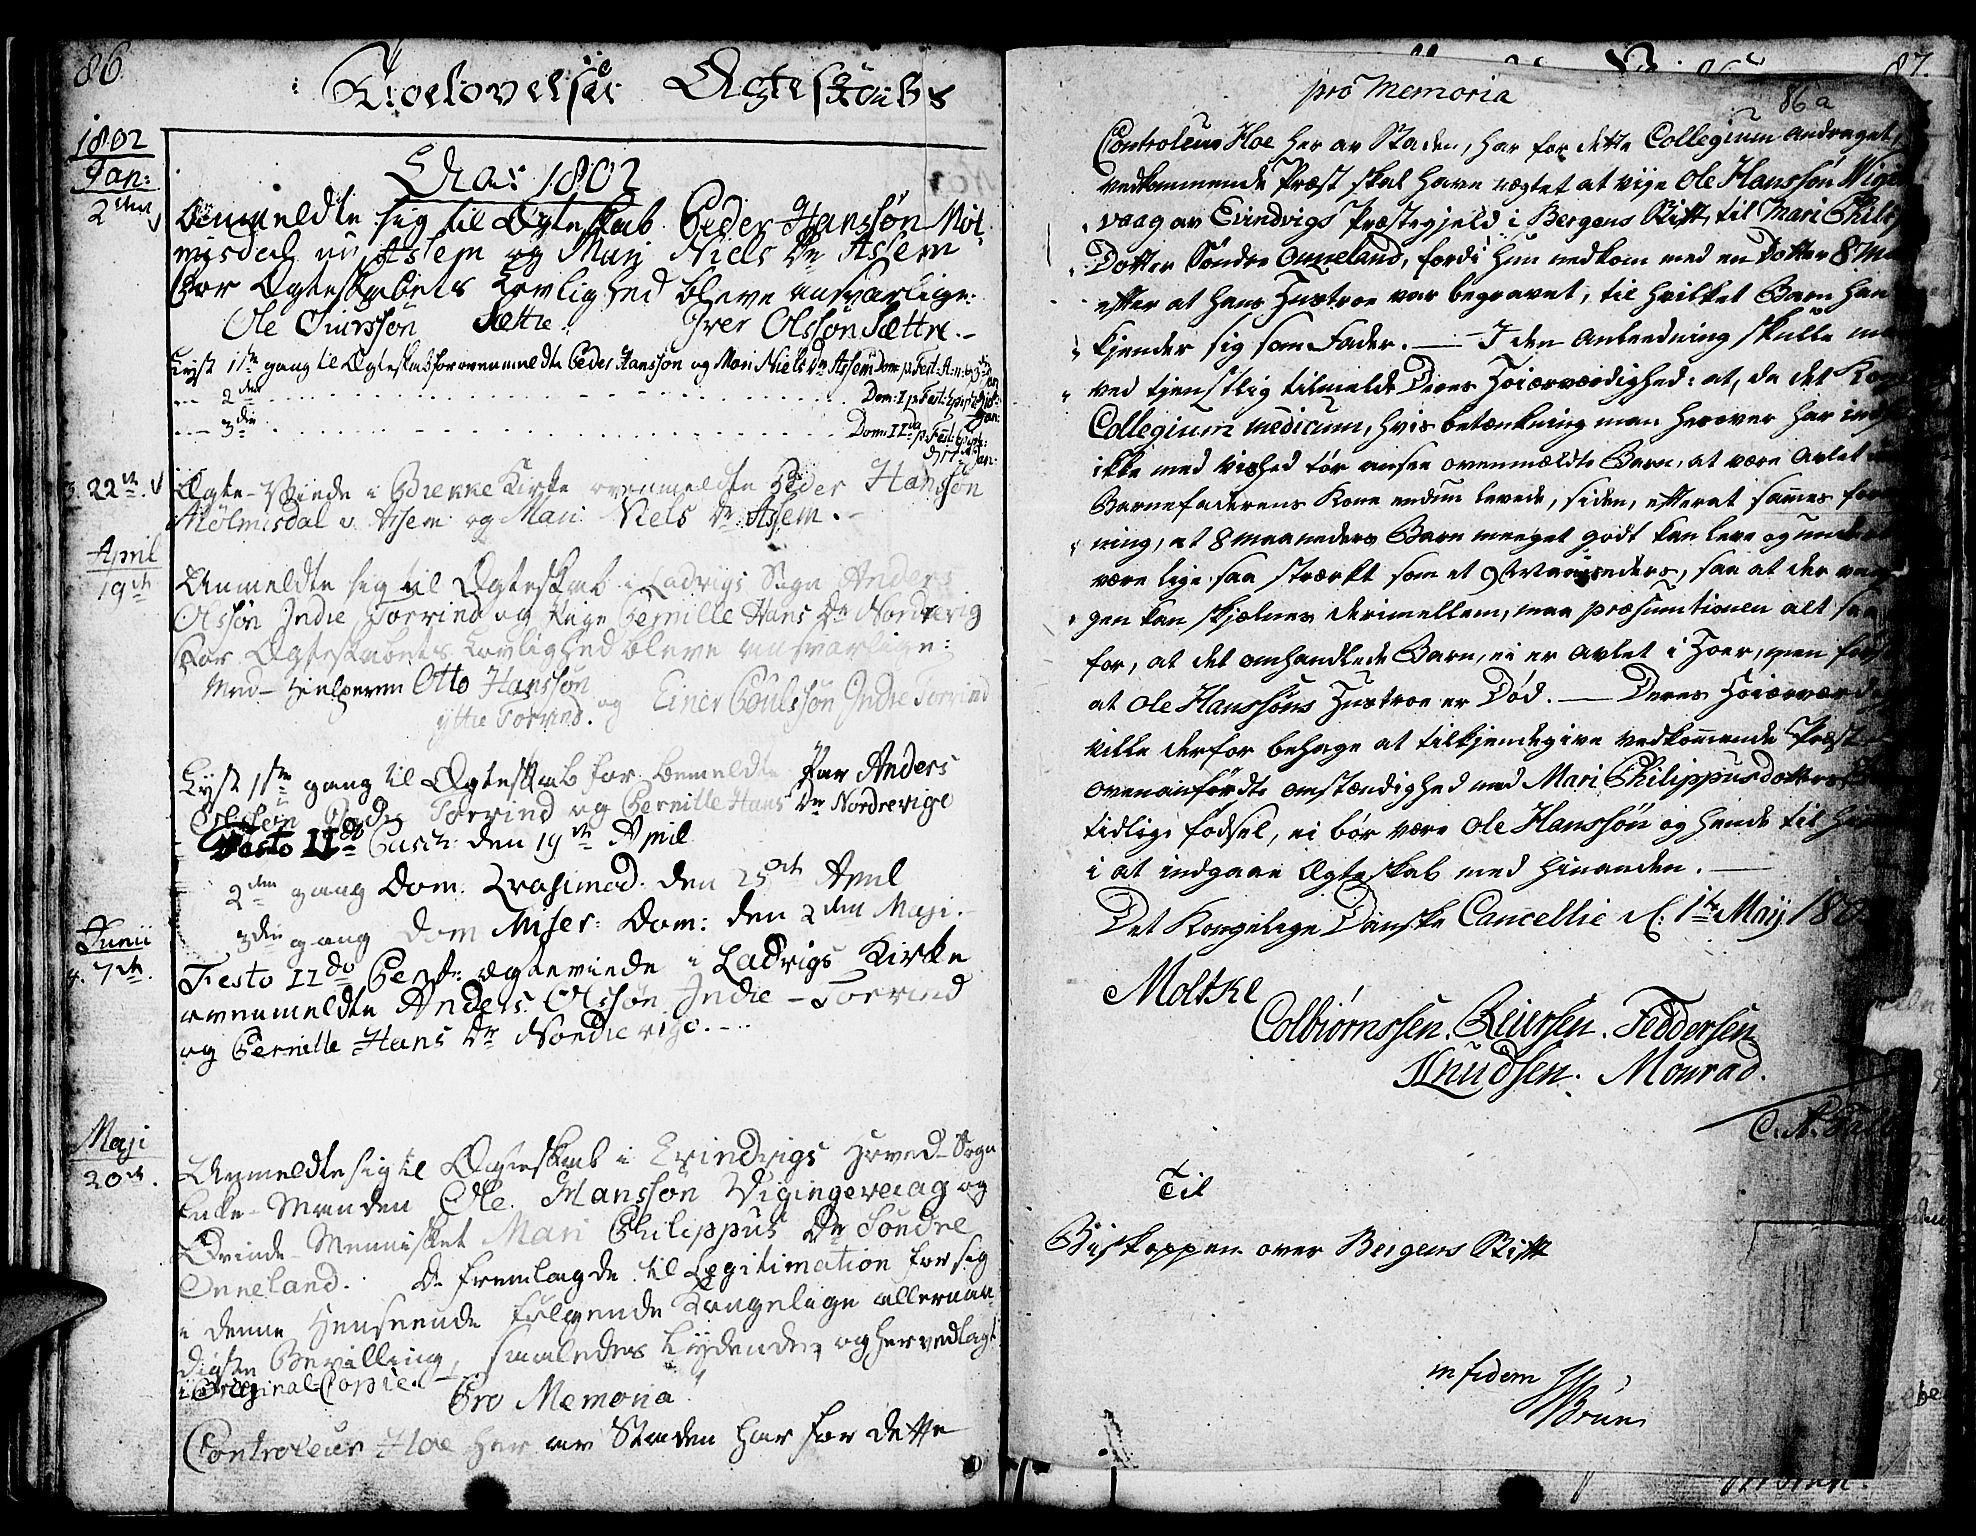 86
Troelovelser Ægteskabs
1802
Jan:
2den
Aar 1802
Anmeldte sig til Ægteskab Peder Hanssøn Møl-
misdal nu Assem og Mari Niels Dr Assem
For Ægteskabets Lovlighed bleve ansvarlige:
Ole Siurssøn Sættre: Iver Olssøn Sættre.-
Lyst 1ste gang til Ægteskab for ovenmeldte Peder Hanssøn og Mari Niels Dr Assem Dom: p. Fest:
2den Dom: I p. Fest: Epiph:
3die Dom: II p. Fest: Epiph: d. 17 Jan:
22de Ægte-Viede i Brekke Kirke ovenmeldte Peder Hanssøn
Mølmisdal v. Assem og Mari Niels Dr Assem.-
April
19de
Anmeldte sig til Ægteskab i Ladvigs Sogn Anders
Olssøn Indre Torvind og Pige Pernille Hans Dr Nordrevig
For Ægteskabets Lovlighed bleve ansvarlige:
Med-hielperen Otto Hanssøn og Einer Poulssøn Indre Torvind
yttre Torvind.
Lyst 1ste gang til Ægteskab for bemeldte Par Anders
Olssøn Indre Torvind og Pernille Hans Dr Nordrevige
Festo IIdo Pasch: den 19de April
2den gang Dom: Qvasimod: den 25de April
3die gang Dom Miser: Dom: den 2den Maji.-
Junii
7de
Festo IIdo Pent: Ægteviede i Ladvigs Kirke
ovenmeldte Anders Olssøn Indre-Torvind
og Pernille Hans Dr Nordrevige.-
Maji
20de.
Anmeldte sig til Ægteskab i Evindvigs Hoved-Sogn
Enke-Manden Ole Hanssøn Vigingevaag og
Qvinde-Mennisket Mari Philippus Dr Søndre
Onneland. De fremlagde til Legitimation for sig
i denne Henseende følgende Kongelige allernaa-
digste Bevilling, saaledes lydende, og hervedlagt
i Original Copie.
Pro Memoria
Controleur Hoe her av Staden har for dette
87.
pro Memoria
86a
Controleur Hoe her av Staden, har for dette Collegium andraget,
vedkommende Præst skal have nægtet at vije Ole Hanssøn
vaag av Evindvigs Præstegjeld i Bergens Stift, til Mari
Dotter Søndre Onneland, fordi hun nedkom med en Dotter 8
efter at hans Hustroe var begravet, til hvilket Barn han
kjender sig som Fader. — I den Anledning skulle
ved tjenstlig tilmelde Deres Høiærværdighed: at, da det
Collegium medicum, hvis betænkning man herover har
ikke med vished tør ansee ovenmældte Barn, at være avlet
Barnefaderens Kone endnu levede, siden, efterat sammes
ning, et 8 maaneders Barn meeget godt kan leve og
være lige saa stærkt som et 9 Maaneders, saa at der
gen kan skjælnes derimellem, maa præsumtionen alt
for, at det omhandlede Barn, ei er avlet i Hoer, men
at Ole Hanssøns Hustroe er Død. — Deres
ville derfor behage at tilkjendegive vedkommende Præst
ovenanførdte omstændighed med Mari Philippusdotters
tidlige fødsel, ei bør være Ole Hanssøn og hende til
i at indgaae Ægteskab med hinanden. —
Det Kongelige Danske Cancellie d: 1te Maij
Moltke
Colbiørnssen. Reiersen. Feddersen
Knudsen. Monrad.
Til
Biskoppen over Bergens Stift
in fidem
Brun